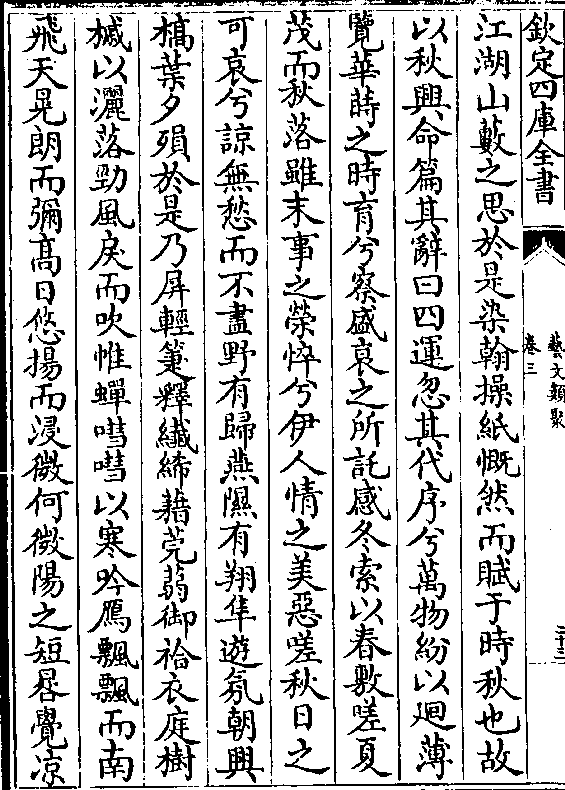 欽定四庫全書
藝文類聚
卷三
二十三
江湖山藪之思於是染翰操紙慨然而賦于時秋也故
以秋興命篇其辭曰四運忽其代序兮萬物紛以廻薄
覽華蒔之時育兮察盛哀之所託感冬索以春敷嗟夏
茂而秋落雖末事之榮悴兮伊人情之美惡嗟秋日之
可哀兮諒無愁而不盡野有歸燕隰有翔隼遊氛朝興
槁葉夕殞於是乃屏輕箑釋纖絺藉莞蒻御袷衣庭樹
槭以灑落勁風戾而吹惟蟬嘒嘒以寒吟鴈飄飄而南
飛天晃朗而彌高日悠揚而浸微何微陽之短晷覺涼